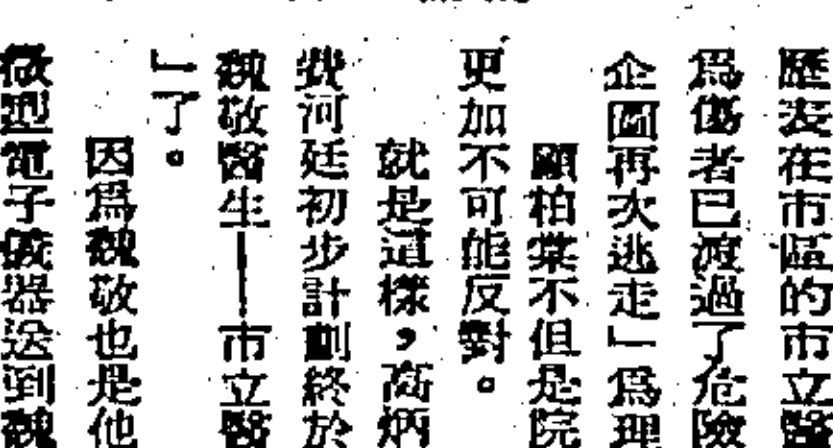 歷表在市區的市立醫
爲傷者已渡過了危險
企圖再次逃走」爲理
顧柏棠不但是院
更加不可能反對。
就是這樣，高炳
費河廷初步計劃終於
魏敬醫生——市立醫
」了。
因爲魏敬也是他
微型電子儀器送到魏